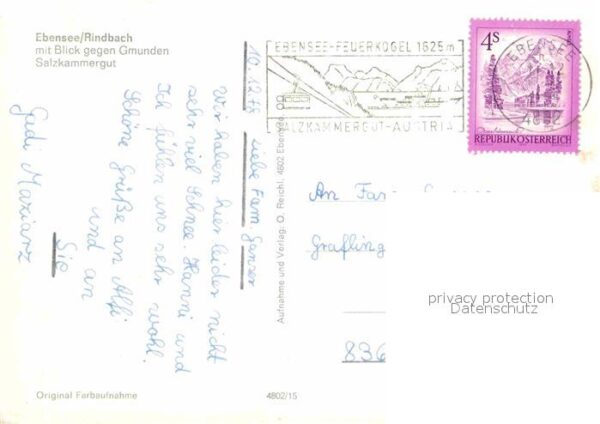 Ebensee/Rindbach
mit Blick gegen Gmunden
Salzkammergut
10.12.78
Liebe Fam. Ganser
Wir haben hier leider nicht
sehr viel Schnee. Hanni und
ich fühlen uns sehr wohl.
Schöne Grüße an Alfi
und an
Sie
Gudi Maxiarz
Aufnahme und Verlag: O. Reichl, 4802 Ebensee, OÖ
EBENSEE-FEUERKOGEL 1625m
SALZKAMMERGUT-AUSTRIA
EBENSEE
4S
REPUBLIK ÖSTERREICH
An Fam
Grafling
836
privacy protection
Datenschutz
Original Farbaufnahme
4802/15